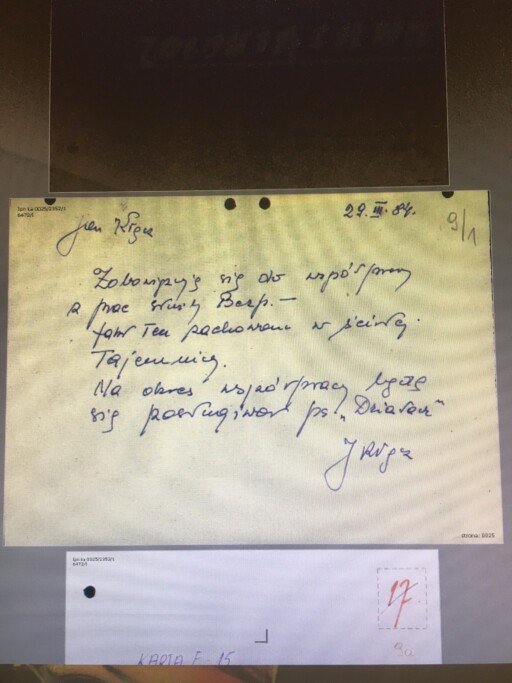 29.III.84.
9/1
Jan
Zobowiązuję się do współpracy
z prac Służby Bezp. -
fakt ten zachowam w ścisłej
Tajemnicy.
Na okres współpracy będę
się posługiwał ps. „Działacz"
J
strona: 0025
17
9a
KARTA E-15